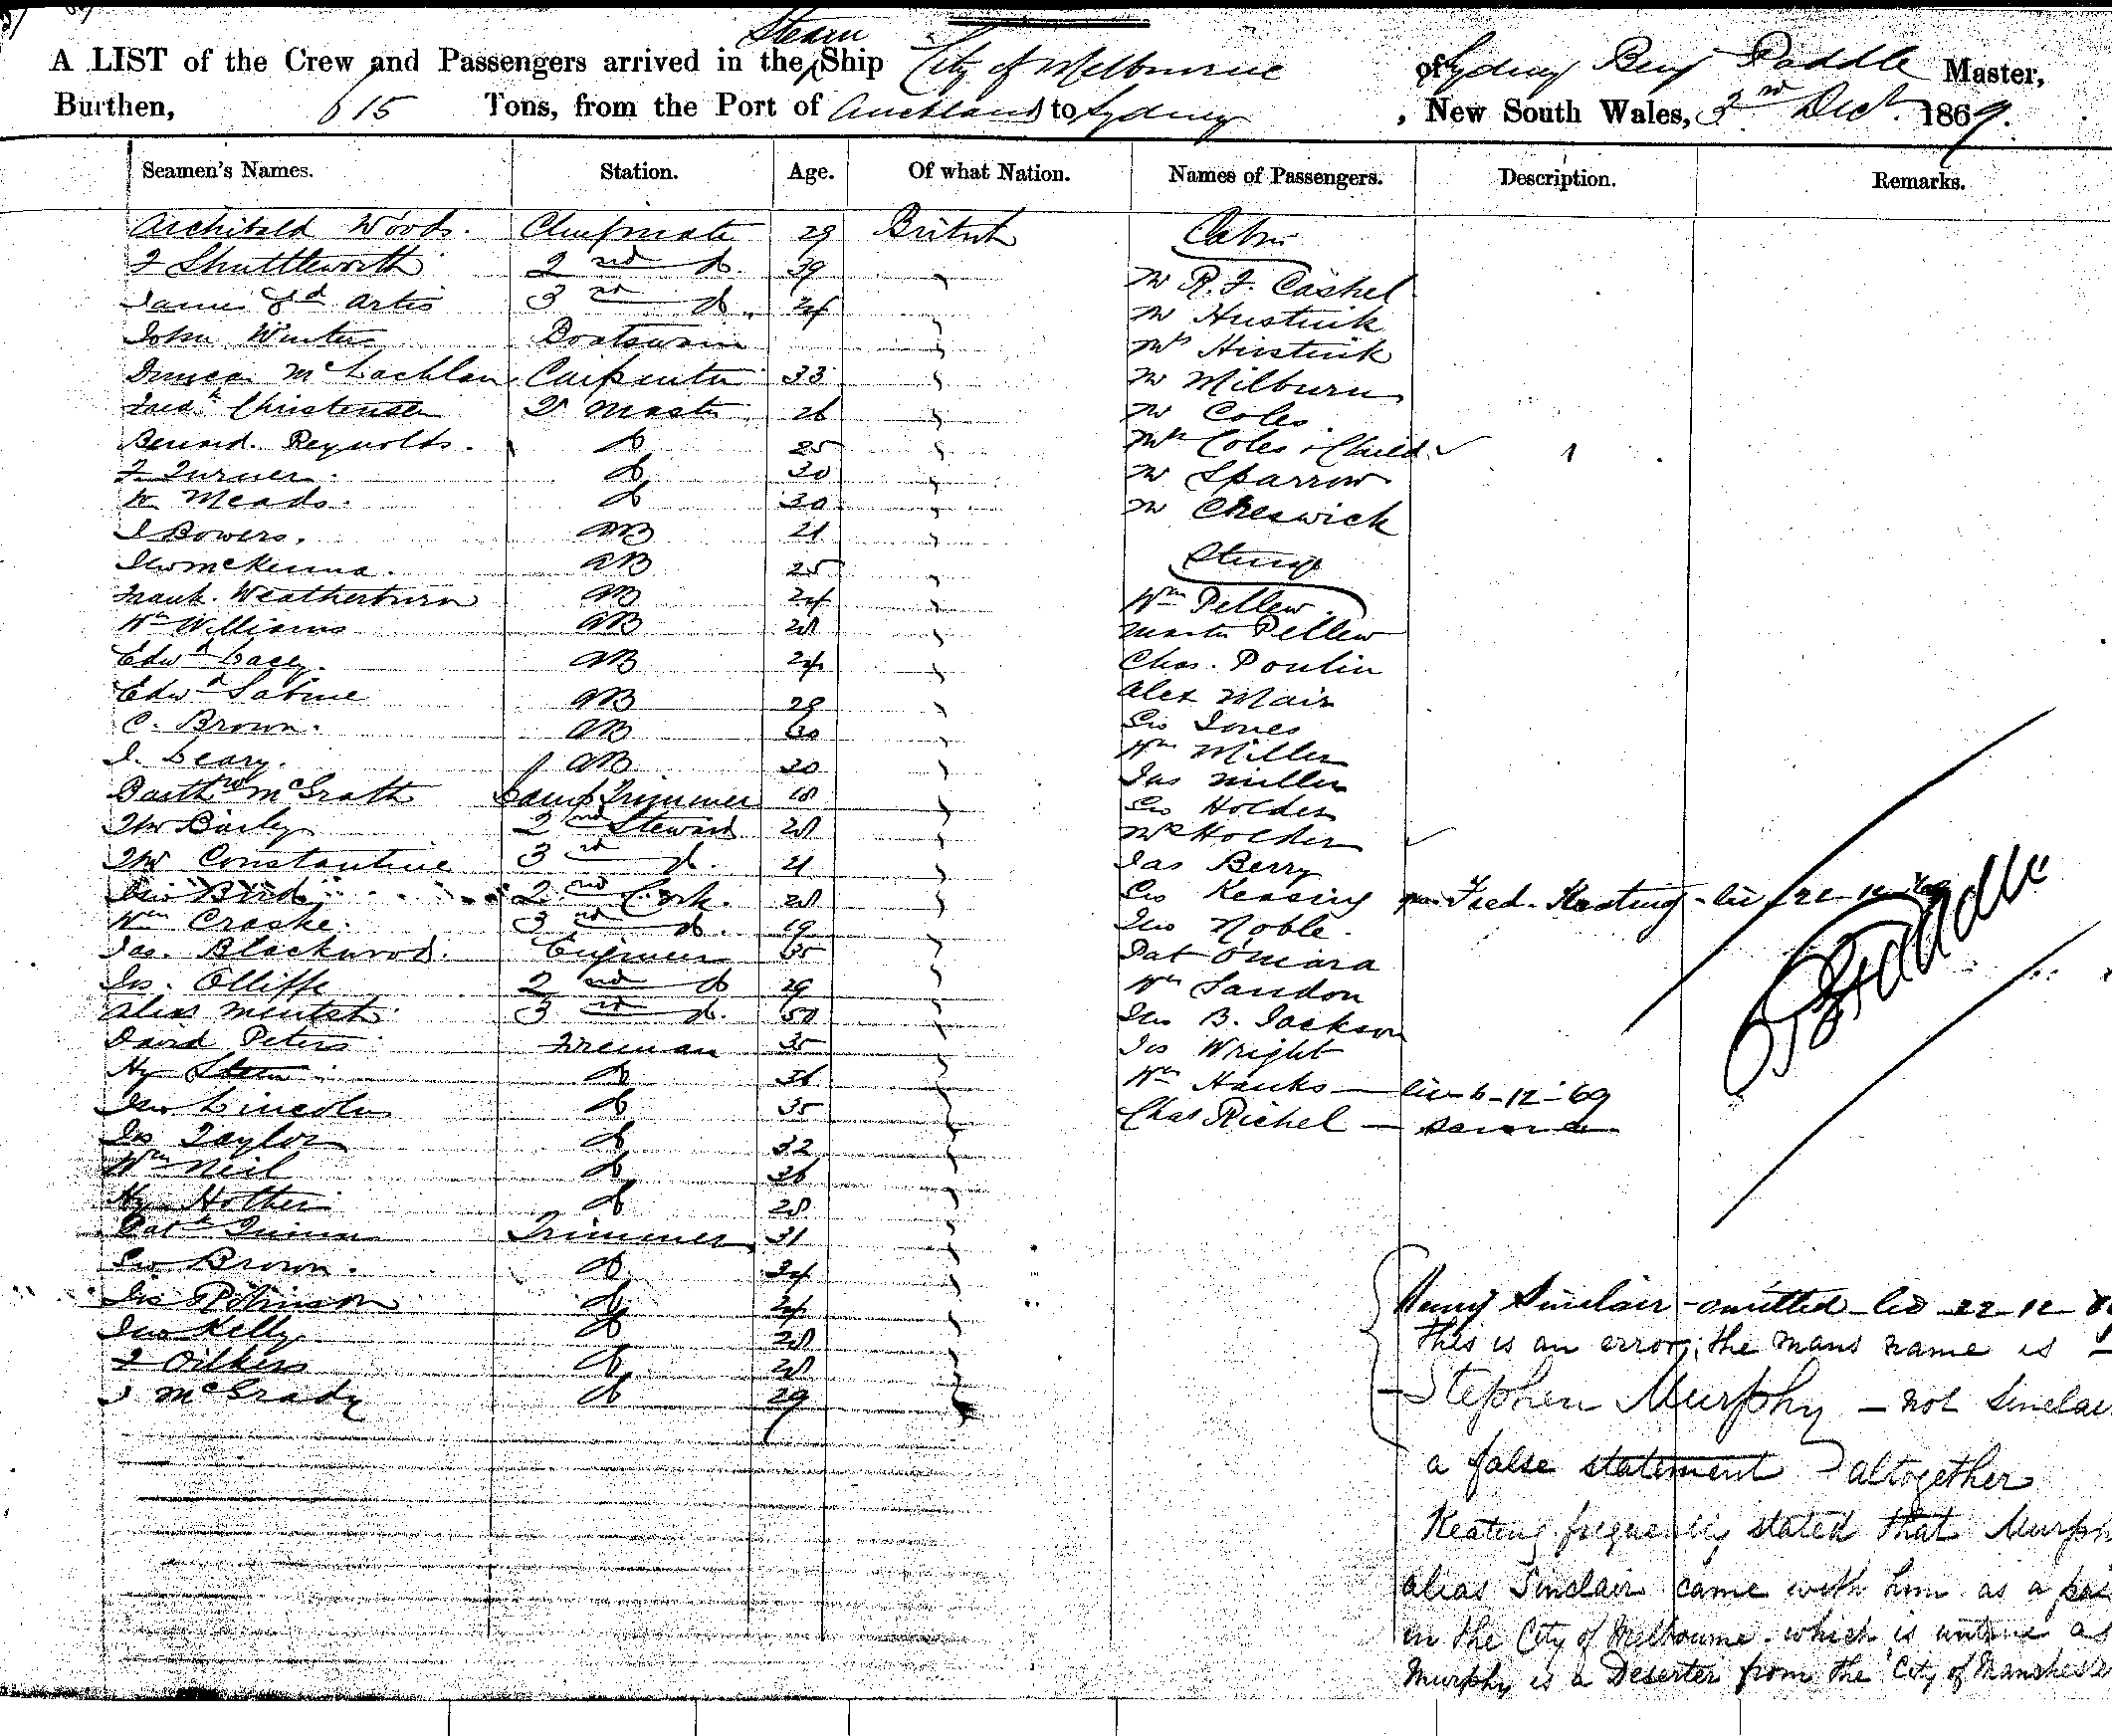 Steam
A LIST of the Crew and Passengers arrived in the Ship City of Melbourne of Sydney Benj Paddle Master,
Burthen, 615 Tons, from the Port of Auckland to Sydney, New South Wales, 3rd Decr 1869.
Seamen's Names. Station. Age. Of what Nation. Names of Passengers. Description. Remarks.
Archibald Woods. Chiefmate 29 British Cabin
J Shuttleworth 2nd do. 39 "
Mr R. J. Cashel
James Artis 3rd do. 24
Mr Hustwik
John Winter Boatswain "
Mrs Hustwik
Duncan McLachlan Carpenter 33 "
Mr Milburn
Fredk Christensen Qr Master 26 "
Mr Coles
Bernard. Reynolds. do 25 "
Mrs Coles & Child 1
F Turner. do 30 "
Mr Sparrow
W Meads. do 30 "
Mr Cheswick
J Bowers. AB 21 "
Jno McKenna. AB 25 "
Steerage
Frank. Weatherburn AB 24 "
Wm Pellew
Wm Williams AB 28 "
Master Pellew
Edwd Lacey. AB 24 "
Chas. Poulin
Edwd Sabine AB 29 "
Alex Mair
C. Brown. AB 30 "
Geo Jones
J. Leary. AB 20 "
Wm Miller
Jas Miller
Barthw McGrath Lamp Trimmer 18 "
Geo Holder
Thos Bailey 2nd Steward 28 "
Mrs Holder
Thos Constantine 3rd do. 21 "
Jas Berry
Geo Bird 2nd Cook. 28 "
Geo Keasing Fred. Keating - 22-12-69
Wm Craske. 3rd do. 19 "
Jno Noble.
Jas. Blackwood. Engineer 35 "
Pat Omara
Jos. Olliffe 2nd do 29 "
Wm Sandon
Alexr 3rd do. 50 "
Jno B. Jackson
David Peters Fireman 35 "
Jos Wright
B Paddle
Hy Steen do 36 "
Wm Hanks — 6-12-69
Jno Lincoln do 35 "
Chas Richel — same
Jos Taylor do 32 "
Wm Neil do 36 "
Hy Hother do 28 "
Patk Trimmer 31 "
Geo Brown. do 34 "
Jos Robinson do 24 "
Henry Sinclair - omitted 22-12-69
Jno Kelly do 28 "
This is an error; the mans name is —
J Oilkers do 28 "
J McGrady do 29 "
— Stephen Murphy — not Sinclair
a false statement altogether
Keating frequently stated that Murph
alias Sinclair came with him as a pas
in the City of Melbourne. which is untrue as
Murphy is a Deserter from the City of Manchester